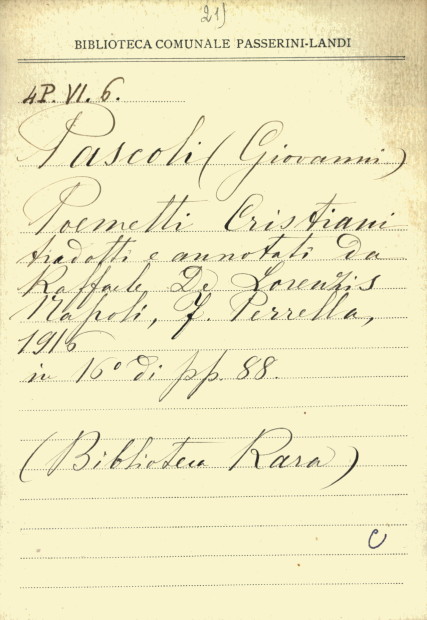 21)
BIBLIOTECA COMUNALE PASSERINI-LANDI
4P. VI. 6.
Pascoli (Giovanni)
Poemetti Cristiani
tradotti e annotati da
Raffaele De Lorenzis
Napoli, F. Perrella,
1916
in 16° di pp. 88.
(Biblioteca Rara)
C